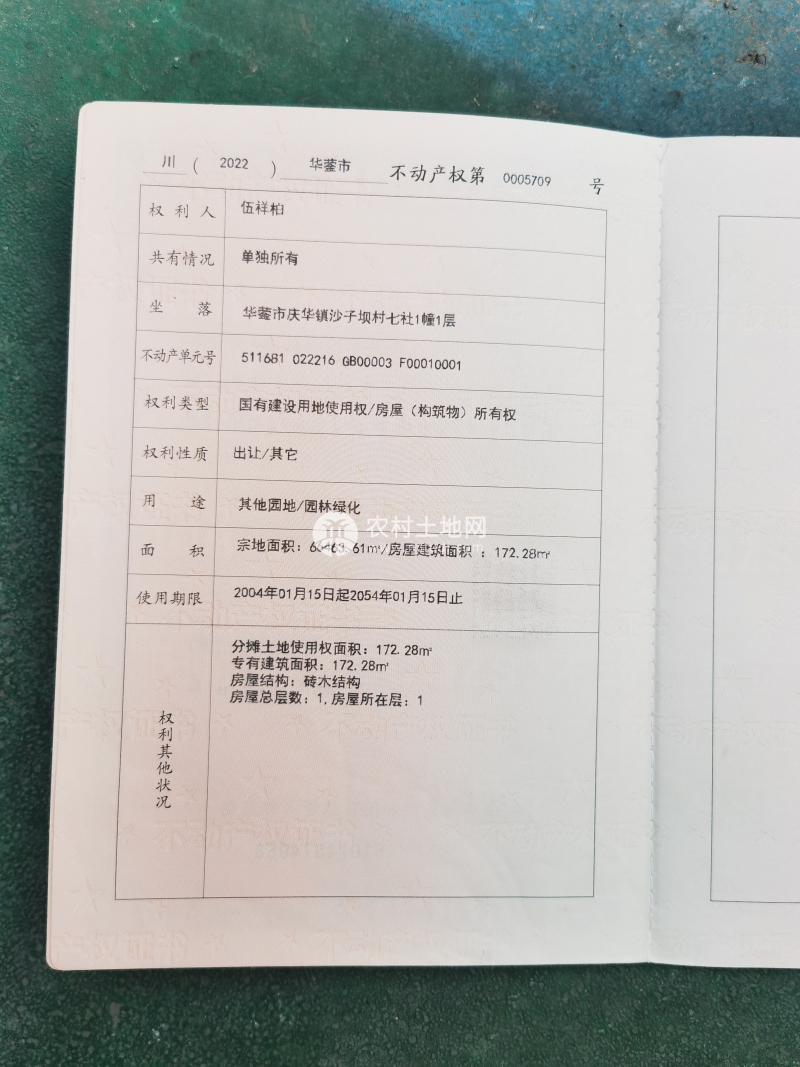 川 ( 2022 ) 华蓥市 不动产权第 0005709 号
权利人 伍祥柏
共有情况 单独所有
坐落 华蓥市庆华镇沙子坝村七社1幢1层
不动产单元号 511681 022216 GB00003 F00010001
权利类型 国有建设用地使用权/房屋（构筑物）所有权
权利性质 出让/其它
用途 其他园地/园林绿化
农村土地网
面积 宗地面积：66463.61㎡/房屋建筑面积：172.28㎡
使用期限 2004年01月15日起2054年01月15日止
权利其他状况
分摊土地使用权面积：172.28㎡
专有建筑面积：172.28㎡
房屋结构：砖木结构
房屋总层数：1,房屋所在层：1